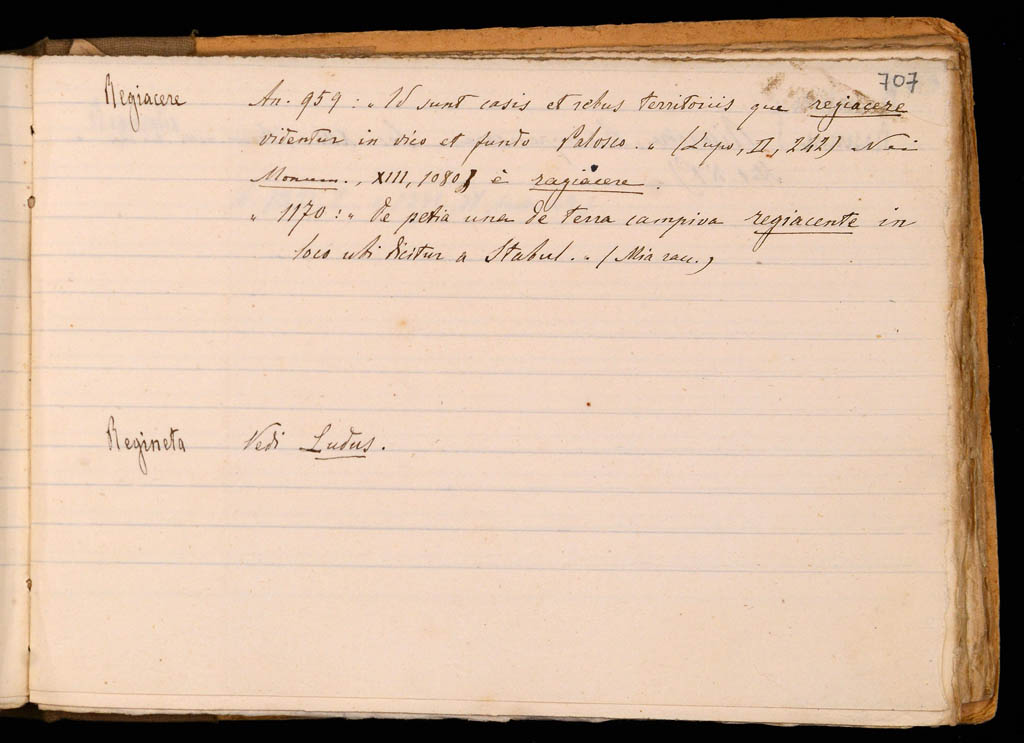 707
Regiacere An. 959: „ Id sunt casis et rebus territoriis que regiacere
videntur in vico et fundo Palosco. „ (Lupo, II, 242) Nei
Monum., XIII, 1080 è ragiacere.
„ 1170: „ De petia una de terra campiva regiacente in
loco ubi dicitur a Stabul. „ (Mia racc.)
Regineta Vedi Ludus.